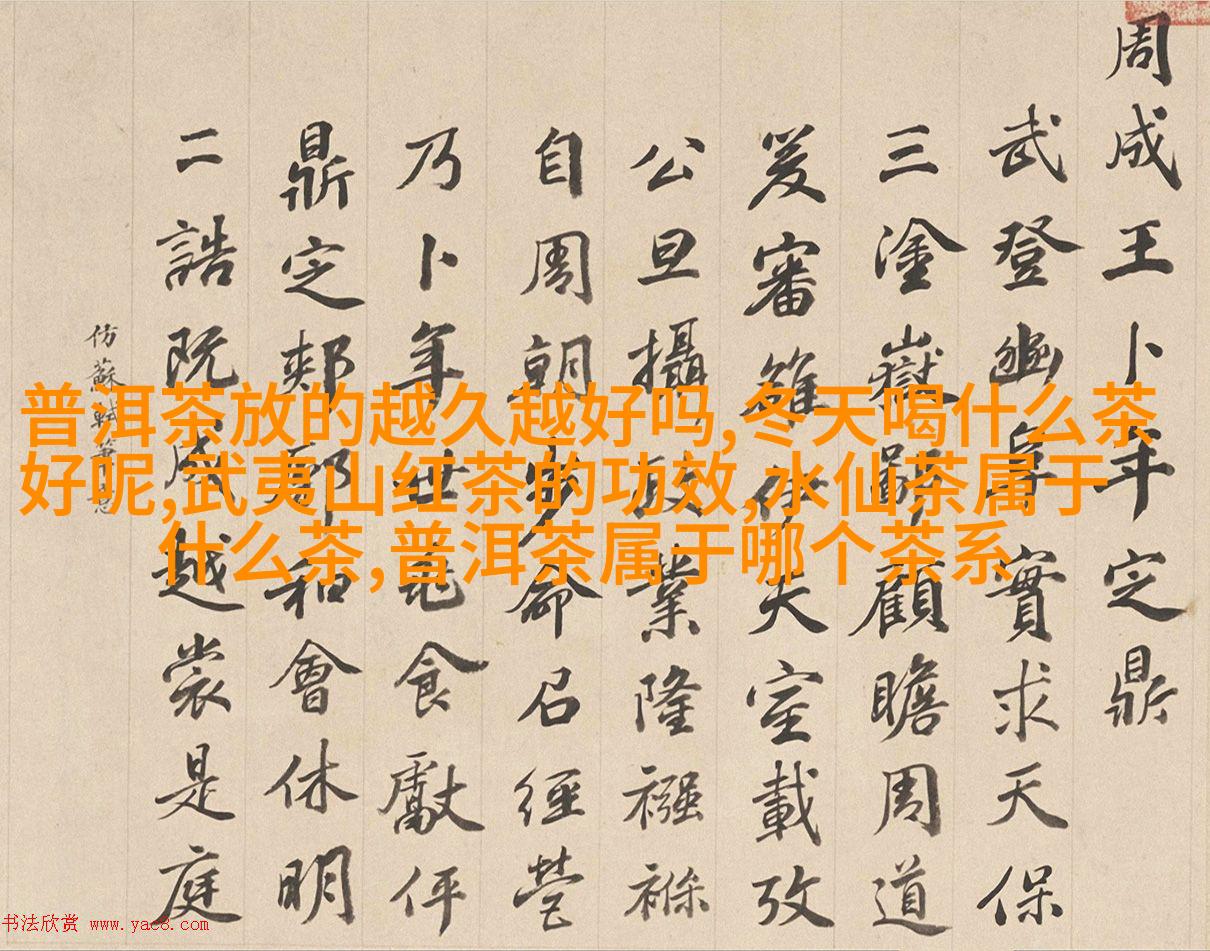 周成王卜年定鼎
武登豳阜實求天保
三塗嶽鄙顧瞻周道
爰審雒伊天室載攷
公旦攝政業隆襁褓
自周朝步命召經營
乃卜年世食獻伻
鼎定郟鄏和會休明
二誥既成越裳是庭
仿蘇軾筆意
普洱茶放的越久越好吗,冬天喝什么茶
好呢,武夷山红茶的功效,水仙茶属于
什么茶,普洱茶属于哪个茶系
书法欣赏 www.yac8.com